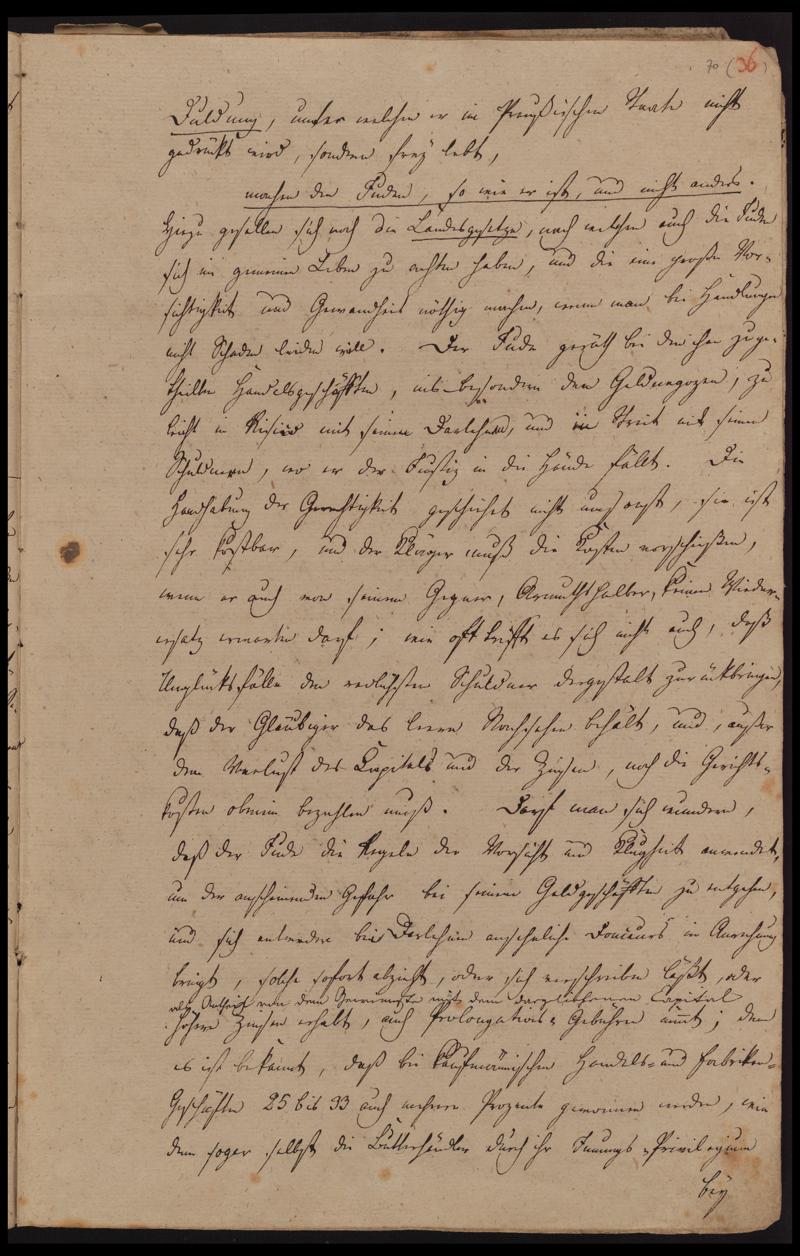 70 (36)
Duldung, unter welcher er im Preußischen Staate nicht
gedrückt wird, sondern frey lebt,
machen den Juden, so wie er ist, und nicht anders.
Hiezu gesellen sich noch die Landesgesetze, nach welchen auch die Juden
sich im gemeinen Leben zu achten haben, und die eine große Vor-
sichtigkeit und Gewandheit nöthig machen, wenn man bei Handlungen
nicht Schaden leiden will. Der Jude geräth bei den ihm zuge-
theilten Handelsgeschäften, insbesondere den Geldnegozen, zu
leicht in Risico mit seinen Darlehnen, und in Streit mit seinen
Schuldnern, wo er der Justiz in die Hände fällt. Die
Handhabung der Gerechtigkeit geschiehet nicht umsonst, sie ist
sehr kostbar, und der Kläger muß die Kosten vorschießen,
wenn er auch von seinem Gegner, Armuthshalber, keinen Wieder-
ersatz erwarten darf; wie oft trifft es sich nicht auch, daß
Unglücksfälle den redlichsten Schuldner dergestalt zurückbringen,
daß der Gläubiger das leere Nachsehen behält, und, außer
dem Verlust des Capitals und der Zinsen, noch die Gerichts-
kosten obenein bezahlen muß. Darf man sich wundern,
daß der Jude die Regeln der Vorsicht und Klugheit anwendet,
um der anscheinenden Gefahr bei seinen Geldgeschäften zu entgehen,
und sich entweder bei Darlehnen ansehnliche Douceurs in Anrechnung
bringt, solche sofort abzieht, oder sich verschreiben läßt, oder
als Antheil von dem Gewinnste mit dem dargeliehenen Capital
höhere Zinsen erhält, auch Prolongations-Gebühren nimmt; denn
es ist bekannt, daß bei kaufmännischen Handels- und Fabriken-
Geschäften 25 bis 33 auch mehrere Prozente gewonnen werden, wie
denn sogar selbst die Butterhändler durch ihr Innungs-Privilegium
bey